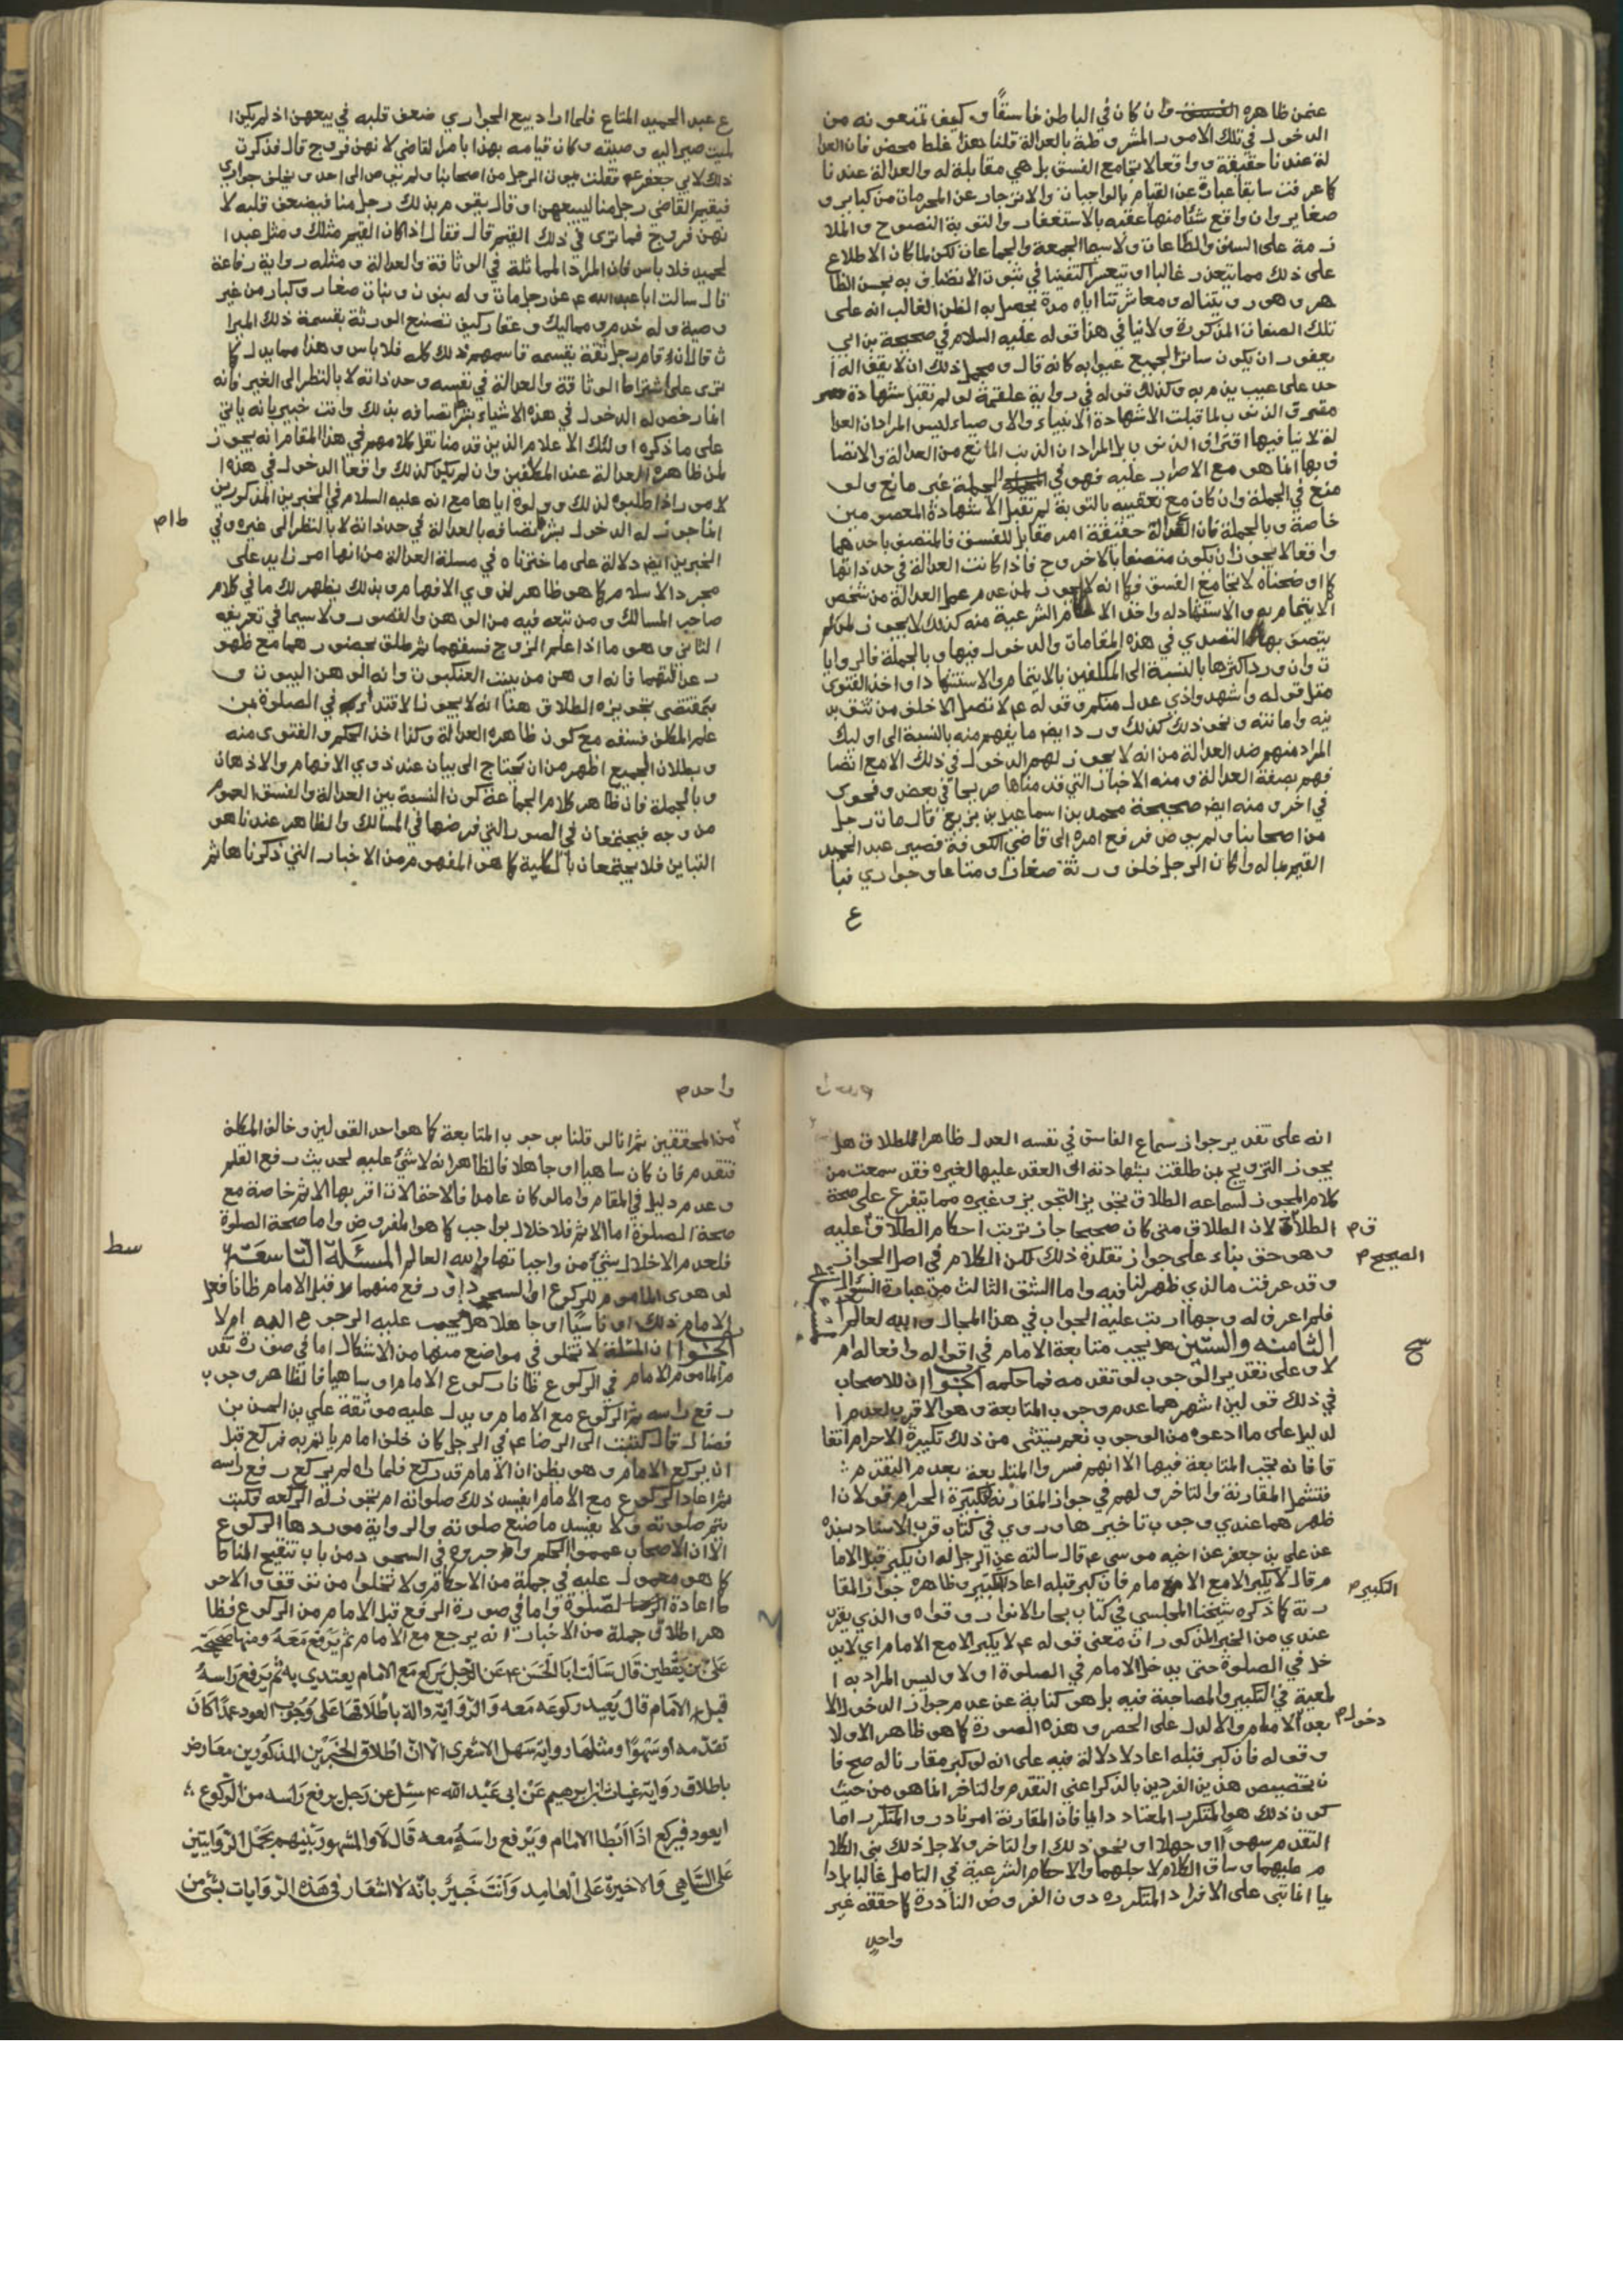 عمن ظاهره الفسق وان كان في الباطن فاسقًا وكيف تمنعونه من
الدخول في تلك الامور المشروطة بالعدالة قلنا هذا غلط محض فان العدا
لة عندنا حقيقة وواقعا لا تجامع الفسق بل هي مقابلة له والعدالة عندنا
كما عرفت سابقا عبارة عن القيام بالواجبات والانزجار عن المحرمات من كبايرو
صغاير وان واقع شئا منها عقبه بالاستغفار والتوبة النصوح والملا
زمة على السنن والطاعات ولاسيما الجمعة والجماعات لكن لما كان الاطلاع
على ذلك مما يتعذر غالبا او يتعسر اكتفينا في ثبوت الاتصاف به بحسن الظا
هر وهو رويتنا له ومعاشرتنا اياه مدة يحصل به الظن الغالب انه على
تلك الصفات المذكورة ولا ينافي هذا قوله عليه السلام في صحيحة بن ابي
يعفور ان يكون ساترا لجميع عيوبه كانه قال ومجمل ذلك ان لا يقف له ا
حد على عيب يذمر به وكذلك قوله في رواية علقمة لو لم تقبل شهادة
مقترف الذنوب لما قبلت الا شهادة الانبياء والاوصياء ليس المراد ان العدا
لة لا ينافيها اقتراف الذنوب بل المراد ان الذنب المانع من العدالة والاتصا
ف بها انما هو مع الاصرار عليه فهو في الجملة غير مانع ولو
منع في الجملة وان كان مع تعقيبه بالتوبة لم تقبل الا شهادة المعصومين
خاصة وبالجملة فان العدالة حقيقة امر مقابل للفسق فالمتصف باحدهما
واقعا لا يجوز ان يكون متصفا بالاخر وح فاذا كانت العدالة في حد ذاتها
كما اوضحناه لا تجامع الفسق فكما انه لا يجوز لمن عدم علم العدالة من شخص
الايتمام به والاستشهاد له واخذ الاحكام الشرعية منه كذلك لا يجوز لمن لم
يتصف بها التصدي في هذه المقامات والدخول فيها وبالجملة فالروايا
ت وان ورد اكثرها بالنسبة الى المكلفين بالايتمام والاستشهاد او اخذ الفتوى
مثل قوله واشهدوا ذوي عدل منكم وقوله ع لا تصل الا خلف من تثق بد
ينه وامانته ونحو ذلك كذلك ورد ايض ما يفهم منه بالنسبة الى اوليك
المراد منهم ضد العدالة من انه لا يجوز لهم الدخول في ذلك الا مع اتصا
فهم بصفة العدالة ومنه الاخبار التي قدمناها صريحا في بعض وفحوى
في اخر ومنه ايض صحيحة محمد بن اسماعيل بن بزيع قال مات رجل
من اصحابنا ولم يوص فرفع امره الى قاضي الكوفة فصير عبد الحميد
القيم بماله وكان الرجل خلف ورثة صغارا ومتاعا وجواري فبا
ع
ع عبد الحميد المتاع فلما اراد بيع الجواري ضعف قلبه في بيعهن اذ لم يكن ا
لميت صير اليه وصيته وكان قيامه بهذا بامر القاضي لانهن فروج قال فذكرت
ذلك لابي جعفر ع فقلت يموت الرجل من اصحابنا ولم يوص الى احد ويخلف جواري
فيقيم القاضي رجل منا ليبيعهن او قال يقوم بذلك رجل منا فيضعف قلبه لا
نهن فروج فما ترى في ذلك القيم قال فقال اذا كان القيم مثلك ومثل عبد ا
لحميد فلا باس فان المراد المماثلة في الوثاقة والعدالة ومثله رواية رفاعة
قال سالت ابا عبد الله ع عن رجل مات وله بنون وبنات صغار وكبار من غير
وصية وله خدم ومماليك وعقار كيف تصنع الورثة بقسمة ذلك الميرا
ث قال ان قام رجل ثقة يقسمه قاسمهم ذلك كله فلا باس وهذا مما يدل كما
ترى على اشتراط الوثاقة والعدالة في نفسه وحد ذاته لا بالنظر الى الغير فانه
انما رخص له الدخول في هذه الاشياء بشرط اتصافه بذلك وانت خبير بانه ياتي
على ما ذكره اولئك الاعلام الذين قدمنا نقل كلامهم في هذا المقام انه يجوز
لمن ظاهره العدالة عند المكلفين وان لم يكن كذلك واقعا الدخول في هذه ا
لامور اذا طلبوه لذلك وولوه اياها مع انه عليه السلام في الخبرين المذكورين
طام
انما جوز له الدخول بشرط اتصافه بالعدالة في حد ذاته لا بالنظر الى غيره وفي
الخبرين ايض دلالة على ما اخترناه في مسلة العدالة من انها امر زايد على
مجرد الاسلام كما هو ظاهر لذوي الافهام وبذلك يظهر لك ما في كلام
صاحب المسالك ومن تبعه فيه من الوهن والقصور ولاسيما في تعريفه
الثاني وهو ما اذا علم الزوج فسقهما ثم طلق بحضورهما مع ظهو
ر عدالتهما فانه اوهن من بيت العنكبوت وانه لاوهن البيوت و
بمقتضى تجويزه الطلاق هنا انه لا يجوز الاقتداء في الصلوة بمن
علم المكلف فسقه مع كون ظاهره العدالة وكذا اخذ الحكم والفتوى منه
وبطلان الجميع اظهر من ان يحتاج الى بيان عند ذوي الافهام والاذهان
وبالجملة فان ظاهر كلام الجماعة كون النسبة بين العدالة والفسق العموم
من وجه فيجتمعان في الصور التي فرضها في المسالك والظاهر عندنا هو
التباين فلا يجتمعان بالكلية كما هو المفهوم من الاخبار التي ذكرناها ثم
انه على تقدير جواز سماع الفاسق في نفسه العدل ظاهرا للطلاق هل
يجوز التزويج بمن طلقت بشهادته الى العقد عليها لغيره فقد سمعت من
كلام المجوز لسماعه الطلاق تجويز التجويز وغيره مما يتفرع على صحة
الطلاق لان الطلاق متى كان صحيحا جاز ترتب احكام الطلاق عليه
ق م
الصحيح م
وهو حق بناء على جواز تقلده ذلك لكن الكلام في اصل الجواز
وقد عرفت ما الذي ظهر لنا فيه واما الشق الثالث من عبارة
فلم اعرف له وجها ارتب عليه الجواب في هذا المجال والله العالم
الثامنه والستين هل يجب متابعة الامام في اقواله وافعاله ام
سح
لا وعلى تقدير الوجوب لو تقدمه فما حكمه الجواب ان للاصحاب
في ذلك قولين اشهرهما عدم وجوب المتابعة وهو الاقرب لعدم ا
لدليل على ما ادعوه من الوجوب نعم يستثنى من ذلك تكبيرة الاحرام اتفا
قا فانه تجب المتابعة فيها الا انهم فسروا المتابعة بعدم التقدم
فتشمل المقارنة والتاخر ولهم في جواز المقارنة بتكبيرة الحرام قولان ا
ظهرهما عندي وجوب تاخيرها وروي في كتاب قرب الاسناد بسنده
عن علي بن جعفر عن اخيه موسى ع قال سالته عن الرجل له ان يكبر قبل الاما
م قال لا يكبر الا مع الامام فان كبر قبله اعاد التكبير وظاهره جواز المقا
التكبير م
رنة كما ذكره شيخنا المجلسي في كتاب بحار الانوار وقواه والذي يقرب
عندي من الخبر المذكور ان معنى قوله ع لا يكبر الا مع الامام اي لا يد
خل في الصلوة حتى يدخل الامام في الصلوة اولا وليس المراد به ا
لمعية في التكبير والمصاحبة فيه بل هو كناية عن عدم جواز الدخول الا
بعد الامام والا لدل على الحصر وهذه الصورة كما هو ظاهر الاولا
دخول م
وقوله فان كبر قبله اعاد لا دلالة فيه على انه لو كبر مقارنا له صح فا
ن تخصيص هذين الفردين بالذكر اعني التقدم والتاخر انما هو من حيث
كون ذلك هو المتكرر المعتاد دايما فان المقارنة امر نادر والمتكرر اما
التقدم سهوا او جهلا او نحو ذلك او التاخر ولاجل ذلك بني الكلا
م عليهما وساق الكلام لاجلهما والاحكام الشرعية في التامل غالبا بل دا
يما انما تبنى على الافراد المتكرره دون الفروض النادرة كما حققه غير
واحد
واحد م
من المحققين ثم انا لو قلنا بوجوب المتابعة كما هو احد القولين وخالف المكلف
فتقدم فان كان ساهيا او جاهلا فالظاهر انه لا شئ عليه لحديث رفع القلم
وعدم دليل في المقام واما لو كان عامدا فالاحتمالات اقربها الاثم خاصة مع
صحة الصلوة اما الاثم فلاخلاله بواجب كما هو المفروض واما صحة الصلوة
فلعدم الاخلال بشئ من واجباتها والله العالم المسئلة التاسعة
سط
لو هوى الماموم للركوع او السجود او رفع منهما قبل الامام ظانا فعل
الامام ذلك او ناسيا او جاهلا هل يجب عليه الرجوع الى الامام ام لا
الجواب ان المسئلة لا تخلو في مواضع منها من الاشكال اما في صورة تقد
م الماموم الامام في الركوع ظانا ركوع الامام او ساهيا فالظاهر وجوب
رفع راسه ثم الركوع مع الامام ويدل عليه موثقة علي بن الحسن بن
فضال قال كتبت الى الرضا ع في الرجل كان خلف امام ياتم به فركع قبل
ان يركع الامام وهو يظن ان الامام قد ركع فلما راه لم يركع رفع راسه
ثم اعاد الركوع مع الامام ايفسد ذلك صلوته ام تجوز له الركعه فكتب
يتم صلوته ولا يفسد ما صنع صلوته والرواية موردها الركوع
الا ان الاصحاب عمموا الحكم واجروه في السجود من باب تنقيح المناط
كما هو معمول عليه في جملة من الاحكام ولا تخلوا من توقف والاحو
ط اعادة الصلوة واما في صورة الرفع قبل الامام من الركوع فظا
هر اطلاق جملة من الاخبار انه يرجع مع الامام ثم يرفع معه ومنها صحيحة
علي بن يقطين قال سالت ابا الحسن ع عن الرجل يركع مع الامام يقتدي به ثم يرفع راسه
قبل الامام قال يعيد ركوعه معه والرواية دالة باطلاقها على وجوب العود عمدا كان
تقدمه او سهوا ومثلها رواية سهل الاشعرى الا ان اطلاق الخبرين المذكورين معارض
باطلاق رواية غياث بن ابرهيم عن ابى عبد الله ع سئل عن رجل يرفع راسه من الركوع
ايعود فيركع اذا ابطا الامام ويرفع راسه معه قال لا والمشهور بينهم بحمل الروايتين
على الساهي والاخيرة على العامد وانت خبير بانه لا اشعار في هذه الروايات بشئ من